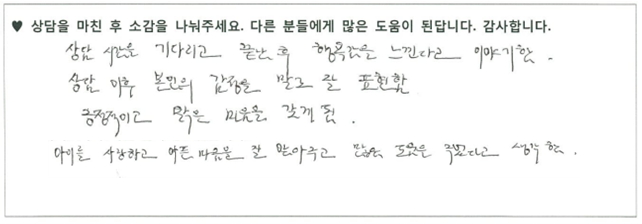 ♥ 상담을 마친 후 소감을 나눠주세요. 다른 분들에게 많은 도움이 된답니다. 감사합니다.
상담 시간을 기다리고 끝난 후 행복감을 느낀다고 이야기함.
상담 이후 본인의 감정을 말로 잘 표현함
긍정적이고 밝은 마음을 갖게 됨.
아이를 사랑하고 아픈 마음을 잘 받아주고 많은 도움을 주었다고 생각함.